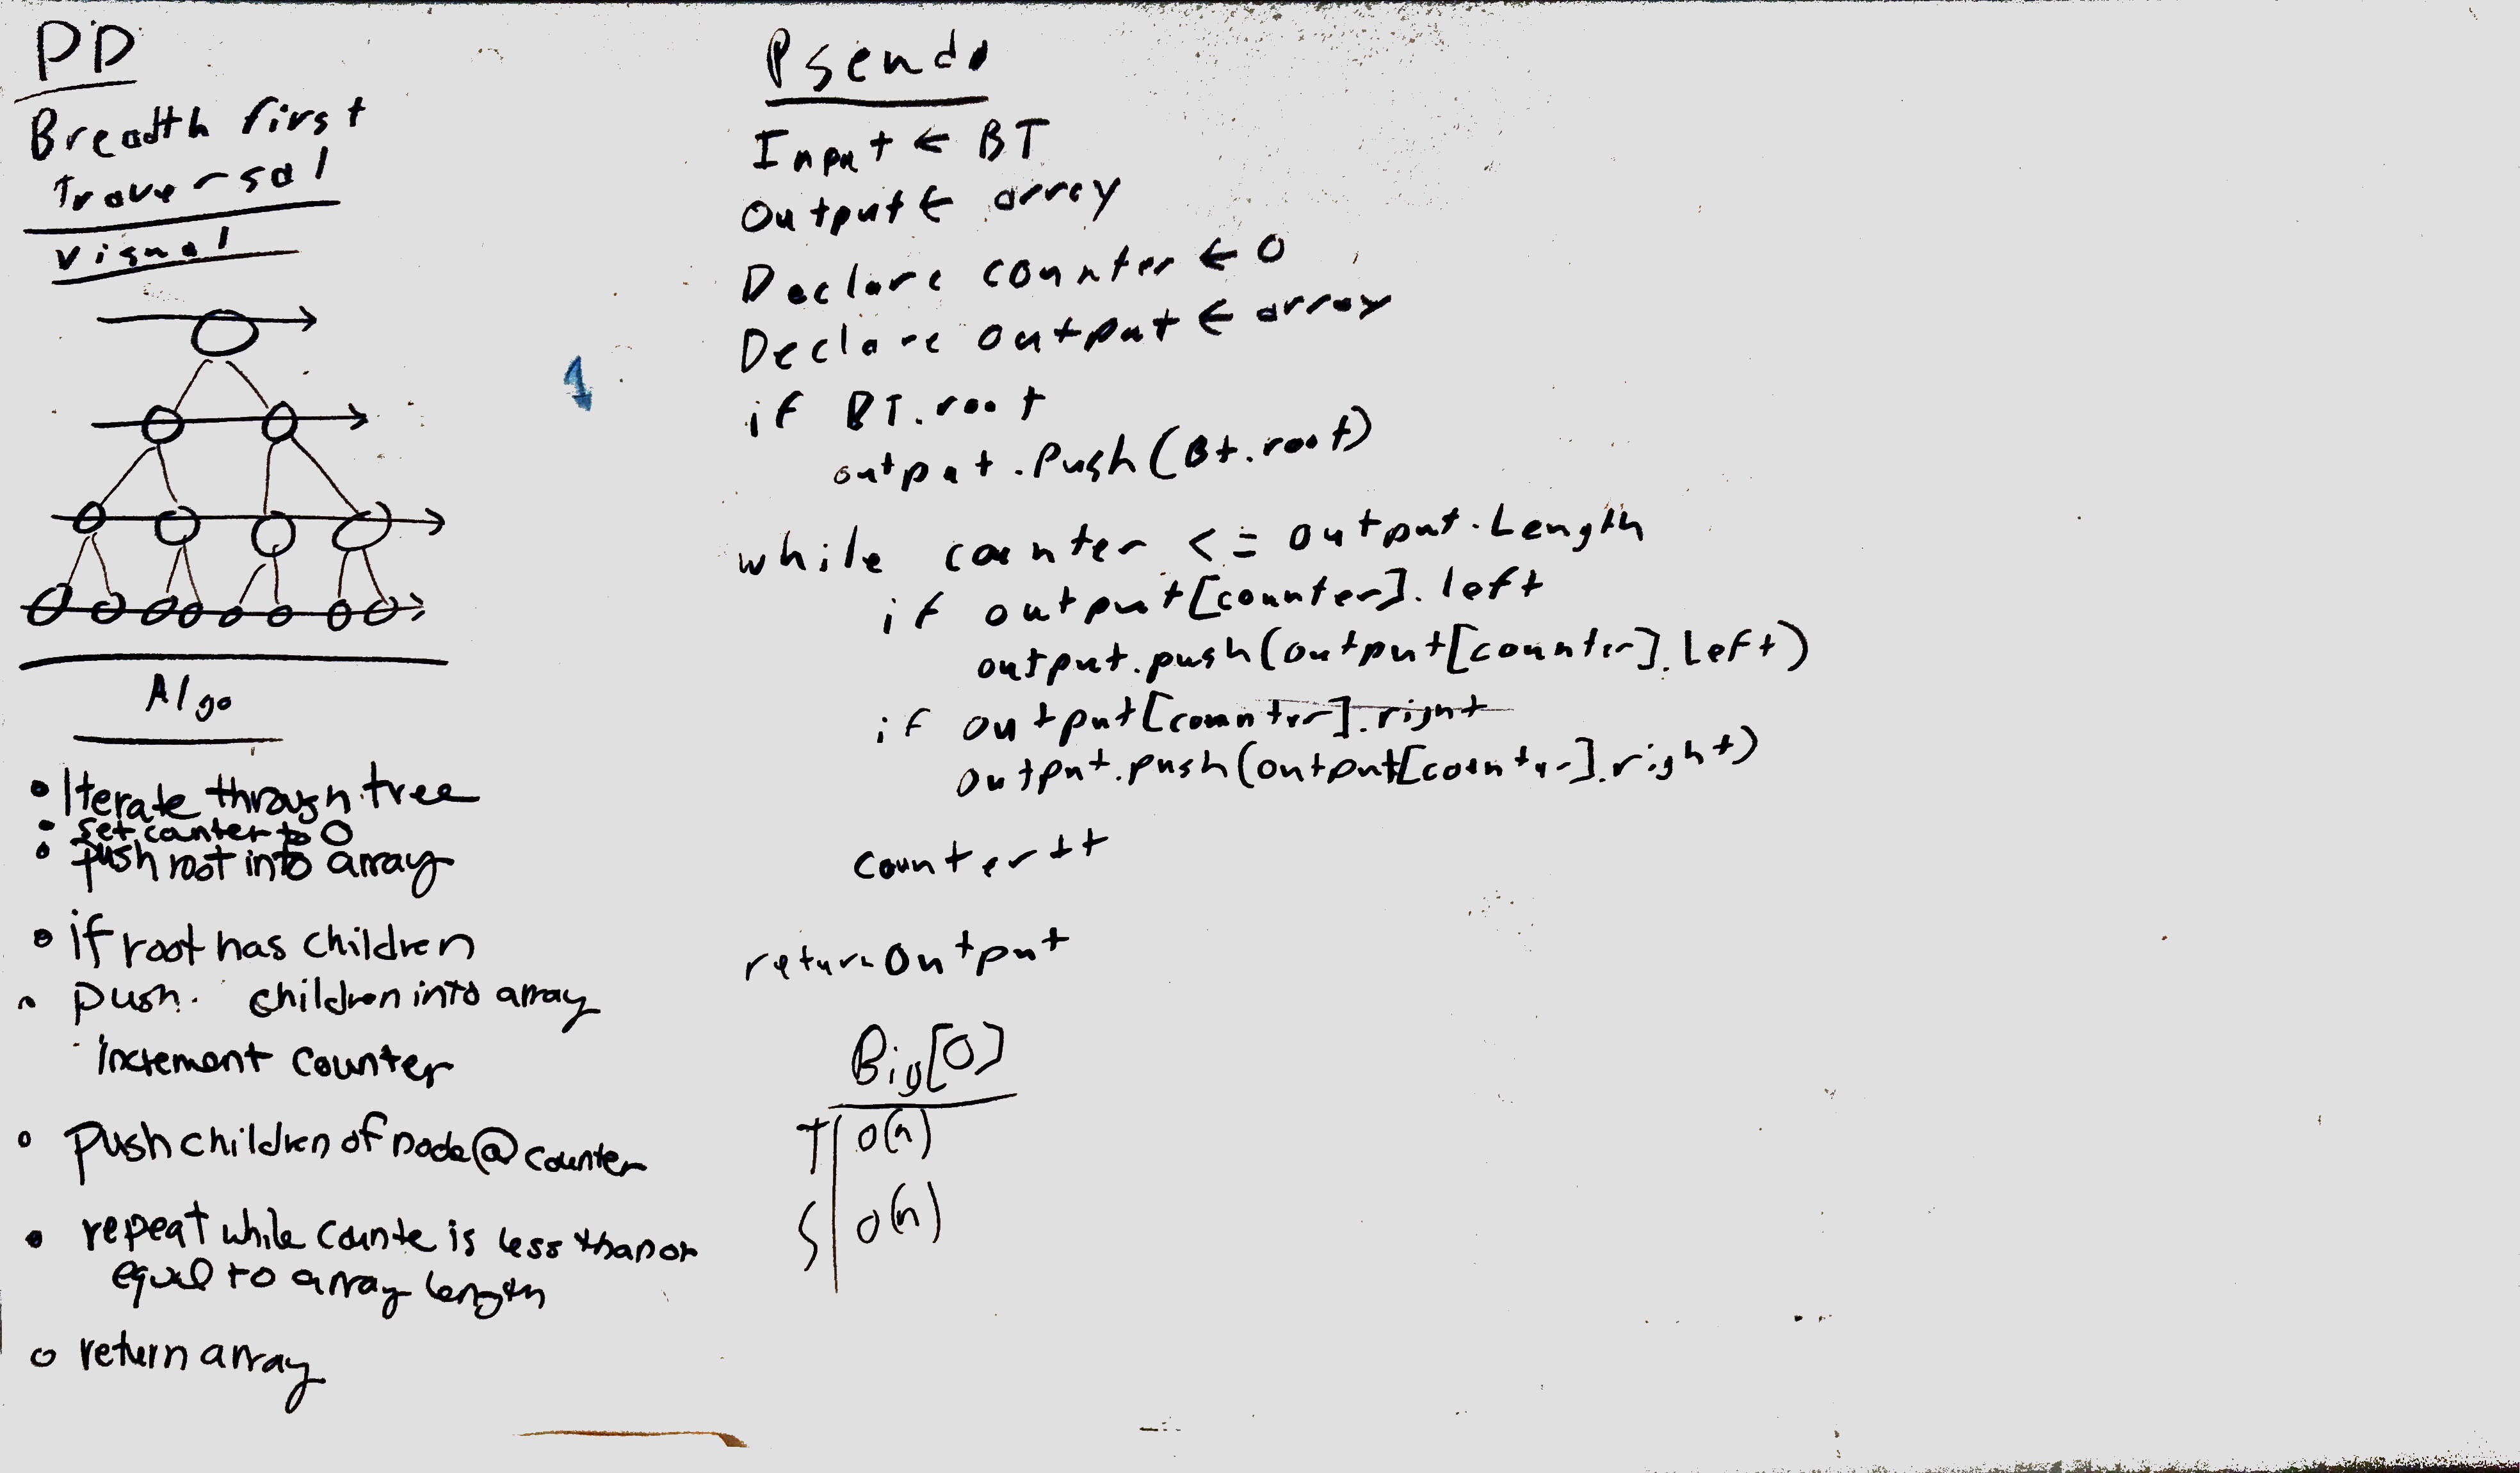 PD
Breadth first
Traversal
Visual
Algo
• Iterate through tree
• set counter to 0
• push root into array
• if root has children
• push children into array
Increment counter
• Push children of node @ counter
• repeat while counte is less than or
equal to array length
• return array
Pseudo
Input ← BT
Output ← array
Declare counter ← 0
Declare output ← array
if BT.root
output.Push(Bt.root)
while counter <= output.Length
if output[counter].left
output.push(output[counter].Left)
if output[counter].right
output.push(output[counter].right)
counter++
return output
Big[O]
T O(n)
S O(n)